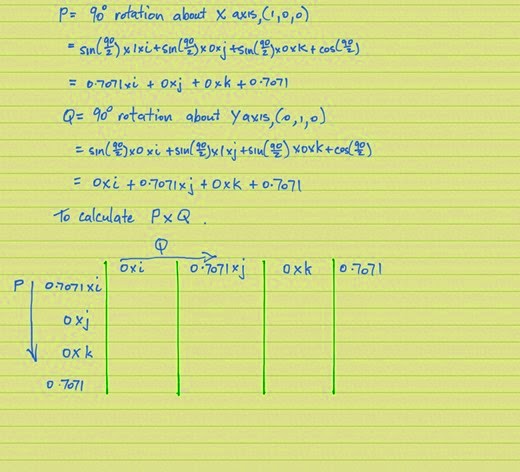 P= 90° rotation about X axis,(1,0,0)
= sin(90/2)x1xi+sin(90/2)x0xj+sin(90/2)x0xk+cos(90/2)
= 0.7071xi + 0xj + 0xk + 0.7071
Q= 90° rotation about Yaxis,(0,1,0)
= sin(90/2)x0xi+sin(90/2)x1xj+sin(90/2)x0xk+cos(90/2)
= 0xi + 0.7071xj + 0xk + 0.7071
To calculate PxQ.
Q
0xi 0.7071xj 0xk 0.7071
P 0.7071xi
0xj
0xk
0.7071